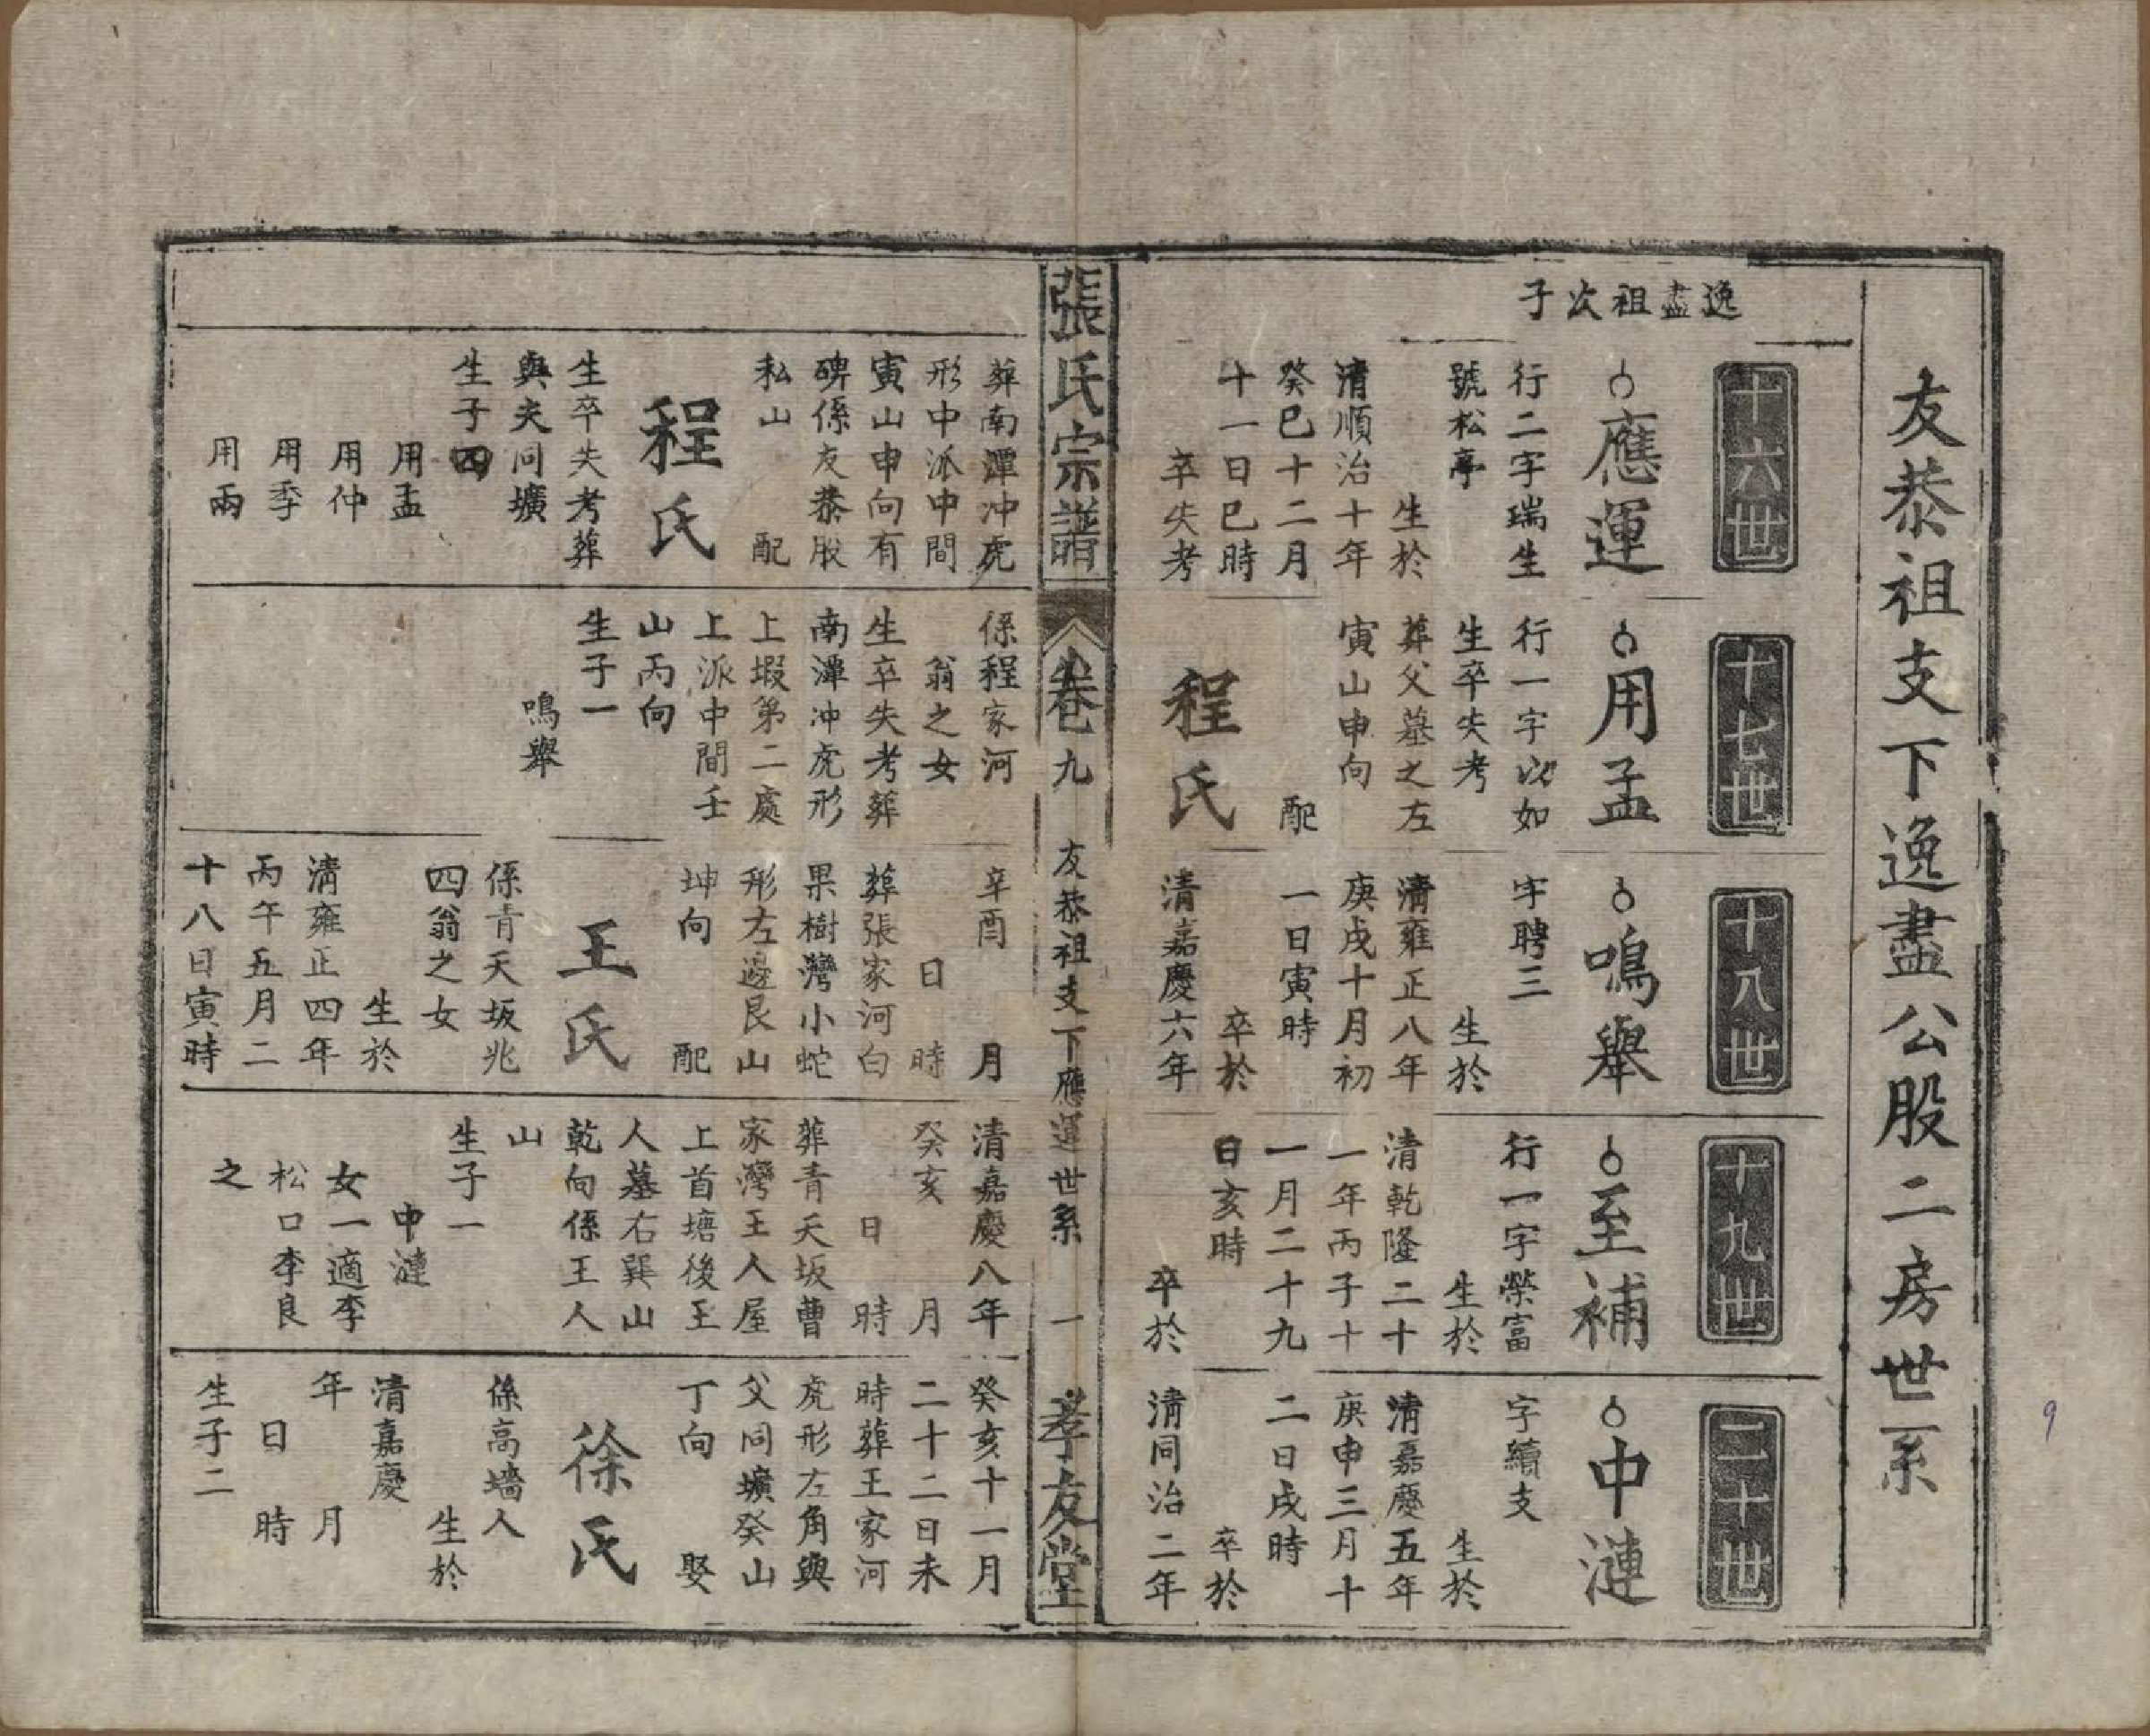 友恭祖支下逸盡公股二房世系
逸盡祖次子
十六世
應運
行二字瑞生
號松亭
生於
清順治十年
癸巳十二月
十一日巳時
卒失考
十七世
用孟
行一字以如
生卒失考
葬父墓之左
寅山申向
配
程氏
十八世
鳴舉
字聘三
生於
清雍正八年
庚戌十月初
一日寅時
卒於
清嘉慶六年
十九世
至補
行一字榮富
生於
清乾隆二十
一年丙子十
一月二十九
日亥時
卒於
二十世
中漣
字續支
生於
清嘉慶五年
庚申三月十
二日戌時
卒於
清同治二年
張氏宗譜
卷九
友恭祖支下應運世系
一
孝友堂
葬南潭冲虎
形中派中間
寅山申向有
碑係友恭股
私山
配
程氏
生卒失考葬
與夫同壙
生子四
用孟
用仲
用季
用兩
係程家河
翁之女
生卒失考葬
南潭冲虎形
上塅第二處
上派中間壬
山丙向
生子一
鳴舉
辛酉
月
日
時
葬張家河白
果樹灣小蛇
形左邊艮山
坤向
配
王氏
係青天坂兆
四翁之女
生於
清雍正四年
丙午五月二
十八日寅時
清嘉慶八年
癸亥
月
日
時
葬青天坂曹
家灣王人屋
上首塘後王
人墓右巽山
乾向係王人
山
生子一
中漣
女一適李
松口李良
之
癸亥十一月
二十二日未
時葬王家河
虎形左角與
父同壙癸山
丁向
娶
徐氏
係高墻人
生於
清嘉慶
年
月
日
時
生子二
9